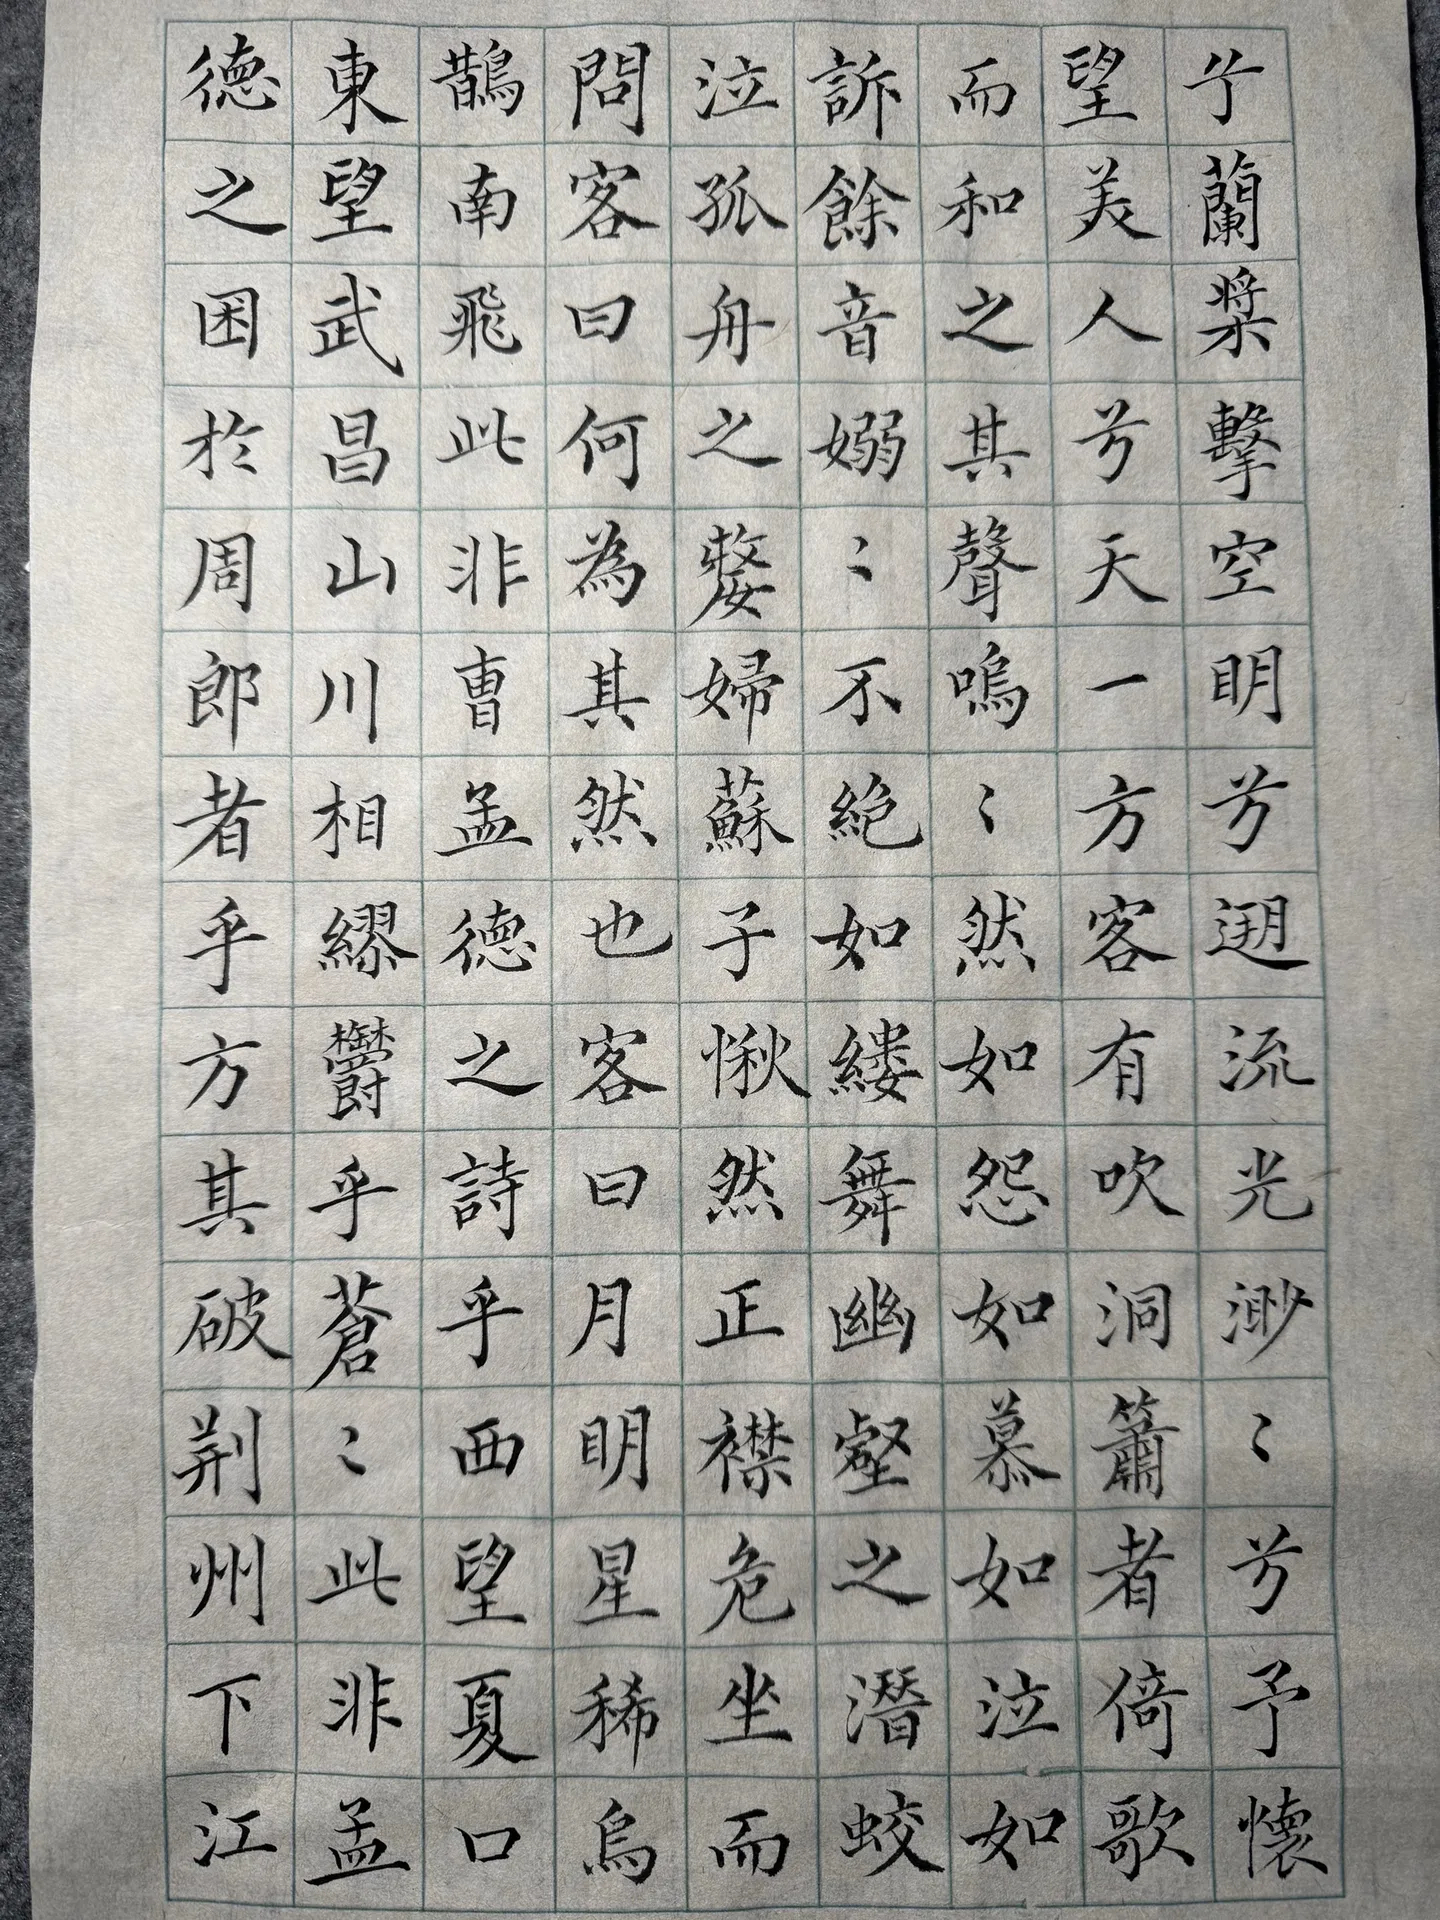 兮蘭槳擊空明兮遡流光渺〻兮予懷
望美人兮天一方客有吹洞簫者倚歌
而和之其聲嗚〻然如怨如慕如泣如
訴餘音嫋〻不絕如縷舞幽壑之潛蛟
泣孤舟之嫠婦蘇子愀然正襟危坐而
問客曰何為其然也客曰月明星稀烏
鵲南飛此非曹孟德之詩乎西望夏口
東望武昌山川相繆鬱乎蒼〻此非孟
德之困於周郎者乎方其破荊州下江